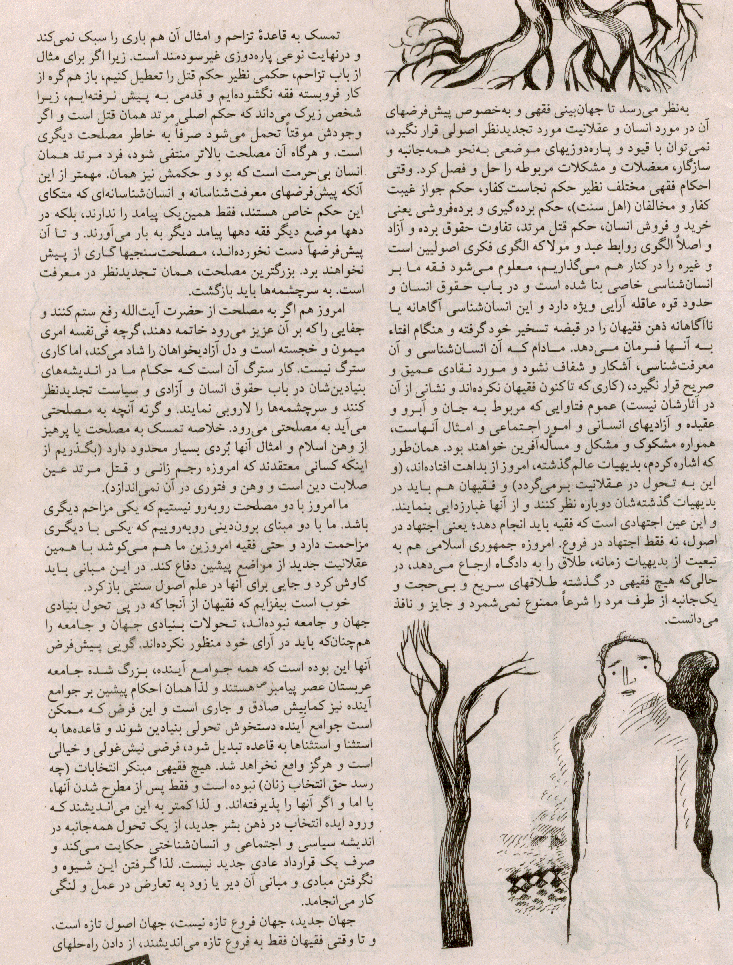 به‌نظر می‌رسد تا جهان‌بینی فقهی و به‌خصوص پیش‌فرضهای
آن در مورد انسان و عقلانیت مورد تجدیدنظر اصولی قرار نگیرد،
نمی‌توان با قیود و پاره‌دوزیهای موضعی به‌نحو همه‌جانبه و
سازگار، معضلات و مشکلات مربوطه را حل و فصل کرد. وقتی
احکام فقهی مختلف نظیر حکم نجاست کفار، حکم جواز غیبت
کفار و مخالفان (اهل سنت)، حکم برده‌گیری و برده‌فروشی یعنی
خرید و فروش انسان، حکم قتل مرتد، تفاوت حقوق برده و آزاد
و اصلاً الگوی روابط عبد و مولا که الگوی فکری اصولیین است
و غیره را در کنار هم می‌گذاریم، معلوم می‌شود فقه ما بر
انسان‌شناسی خاصی بنا شده است و در باب حقوق انسان و
حدود قوه عاقله آرایی ویژه دارد و این انسان‌شناسی آگاهانه یا
ناآگاهانه ذهن فقیهان را در قبضه تسخیر خود گرفته و هنگام افتاء
به آنها فرمان می‌دهد. مادام که آن انسان‌شناسی و آن
معرفت‌شناسی، آشکار و شفاف نشود و مورد نقادی عمیق و
صریح قرار نگیرد، (کاری که تاکنون فقیهان نکرده‌اند و نشانی از آن
در آثارشان نیست) عموم فتاوایی که مربوط به جان و آبرو و
عقیده و آزادیهای انسانی و امور اجتماعی و امثال آنهاست،
همواره مشکوک و مشکل و مسأله‌آفرین خواهند بود. همان‌طور
که اشاره کردم، بدیهیات عالم گذشته، امروز از بداهت افتاده‌اند، (و
این به تحول در عقلانیت برمی‌گردد) و فقیهان هم باید در
بدیهیات گذشته‌شان دوباره نظر کنند و از آنها غبارزدایی بنمایند.
و این عین اجتهادی است که فقیه باید انجام دهد؛ یعنی اجتهاد در
اصول، نه فقط اجتهاد در فروع. امروزه جمهوری اسلامی هم به
تبعیت از بدیهیات زمانه، طلاق را به دادگاه ارجاع می‌دهد، در
حالی‌که هیچ فقیهی در گذشته طلاقهای سریع و بی‌حجت و
یک‌جانبه از طرف مرد را شرعاً ممنوع نمی‌شمرد و جایز و نافذ
می‌دانست.
تمسک به قاعدهٔ تزاحم و امثال آن هم باری را سبک نمی‌کند
و درنهایت نوعی پاره‌دوزی غیرسودمند است. زیرا اگر برای مثال
از باب تزاحم، حکمی نظیر حکم قتل را تعطیل کنیم، باز هم گره از
کار فروبسته فقه نگشوده‌ایم و قدمی به پیش نرفته‌ایم، زیرا
شخص زیرک می‌داند که حکم اصلی مرتد همان قتل است و اگر
وجودش موقتاً تحمل می‌شود صرفاً به خاطر مصلحت دیگری
است. و هرگاه آن مصلحت بالاتر منتفی شود، فرد مرتد همان
انسان بی‌حرمت است که بود و حکمش نیز همان. مهمتر از این
آنکه پیش‌فرضهای معرفت‌شناسانه و انسان‌شناسانه‌ای که متکای
این حکم خاص هستند، فقط همین‌یک پیامد را ندارند، بلکه در
دهها موضع دیگر فقه دهها پیامد دیگر به بار می‌آورند. و تا آن
پیش‌فرضها دست نخورده‌اند، مصلحت‌سنجیها کاری از پیش
نخواهند برد. بزرگترین مصلحت، همان تجدیدنظر در معرفت
است. به سرچشمه‌ها باید بازگشت.
امروز هم اگر به مصلحت از حضرت آیت‌الله رفع ستم کنند و
جفایی را که بر آن عزیز می‌رود خاتمه دهند، گرچه فی‌نفسه امری
میمون و خجسته است و دل آزادیخواهان را شاد می‌کند، اما کاری
سترگ نیست. کار سترگ آن است که حکام ما در اندیشه‌های
بنیادین‌شان در باب حقوق انسان و آزادی و سیاست تجدیدنظر
کنند و سرچشمه‌ها را لاروبی نمایند. و گرنه آنچه به مصلحتی
می‌آید به مصلحتی می‌رود. خلاصه تمسک به مصلحت یا پرهیز
از وهن اسلام و امثال آنها بُردی بسیار محدود دارد (بگذریم از
اینکه کسانی معتقدند که امروزه رجم زانی و قتل مرتد عین
صلابت دین است و وهن و فتوری در آن نمی‌اندازد).
ما امروز با دو مصلحت روبه‌رو نیستیم که یکی مزاحم دیگری
باشد. ما با دو مبنای برون‌دینی روبه‌روییم که یکی با دیگری
مزاحمت دارد و حتی فقیه امروزین ما هم می‌کوشد با همین
عقلانیت جدید از مواضع پیشین دفاع کند. در این مبانی باید
کاوش کرد و جایی برای آنها در علم اصول سنتی باز کرد.
خوب است بیفزایم که فقیهان از آنجا که در پی تحول بنیادی
جهان و جامعه نبوده‌اند، تحولات بنیادی جهان و جامعه را
هم‌چنان‌که باید در آرای خود منظور نکرده‌اند. گویی پیش‌فرض
آنها این بوده است که همه جوامع آینده، بزرگ شده جامعه
عربستان عصر پیامبر(ص) هستند و لذا همان احکام پیشین بر جوامع
آینده نیز کمابیش صادق و جاری است و این فرض که ممکن
است جوامع آینده دستخوش تحولی بنیادین شوند و قاعده‌ها به
استثنا و استثناها به قاعده تبدیل شود، فرضی نیش‌غولی و خیالی
است و هرگز واقع نخواهد شد. هیچ فقیهی مبتکر انتخابات (چه
رسد حق انتخاب زنان) نبوده است و فقط پس از مطرح شدن آنها،
با اما و اگر آنها را پذیرفته‌اند. و لذا کمتر به این می‌اندیشند که
ورود ایده انتخاب در ذهن بشر جدید، از یک تحول همه‌جانبه در
اندیشه سیاسی و اجتماعی و انسان‌شناختی حکایت می‌کند و
صرف یک قرارداد عادی جدید نیست. لذا گرفتن این شیوه و
نگرفتن مبادی و مبانی آن دیر یا زود به تعارض در عمل و لنگی
کار می‌انجامد.
جهان جدید، جهان فروع تازه نیست، جهان اصول تازه است.
و تا وقتی فقیهان فقط به فروع تازه می‌اندیشند، از دادن راه‌حلهای